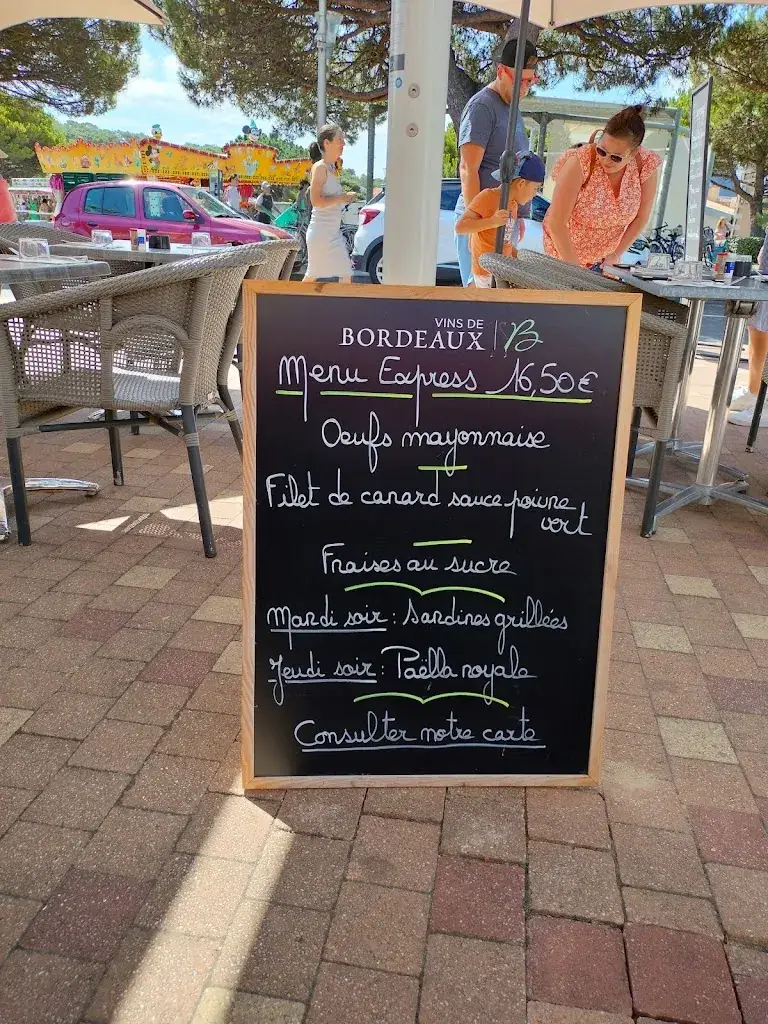 VINS DE
BORDEAUX B
Menu Express 16,50€
Oeufs mayonnaise
Filet de canard sauce poivre
vert
Fraises au sucre
Mardi soir : Sardines grillées
Jeudi soir : Paëlla royale
Consulter notre carte